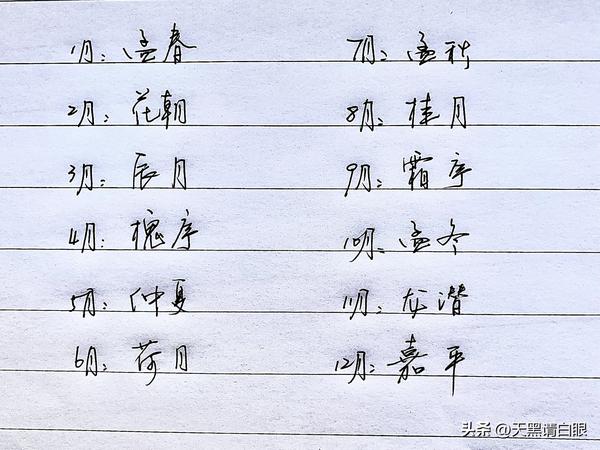 1月：孟春 7月：孟秋
2月：花朝 8月：桂月
3月：辰月 9月：霜序
4月：槐序 10月：孟冬
5月：仲夏 11月：龙潜
6月：荷月 12月：嘉平
头条 @天黑请白眼